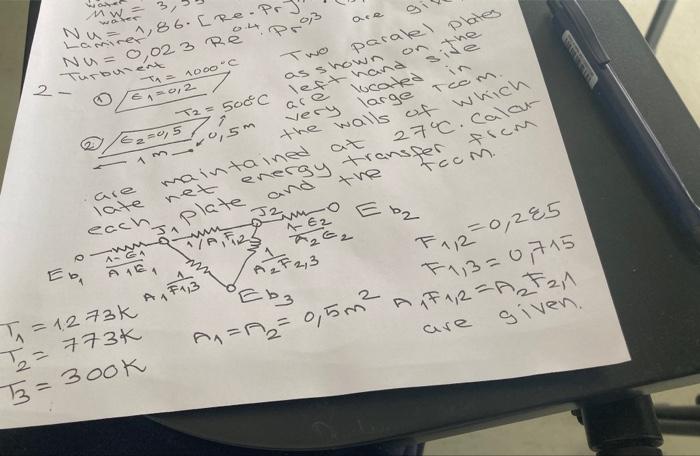 water
MW = 3,
water
Nu = 1,86. [Re. Pr]
Laminer
Nu = 0,023 Re^0.4. Pr^0,3 are
Turbulent
2- T1 = 1000°C
① E1=0,2
T2 = 500°C
② E2=0,5
0,5m
1m
Two paralel plates
as shown on the
left hand side
are located in
very large room.
the walls of which
are maintained at 27°C. Calcu
late net energy transfer from
each plate and the room.
Eb1 1-E1/A1E1 J1 1/A1F1,2 J2 1-E2/A2E2 Eb2
1/A1F1,3 1/A2F2,3
Eb3
F1,2 = 0,285
F1,3 = 0,715
A1F1,2 = A2F2,1
are given.
T1 = 1273K
T2 = 773K
T3 = 300K
A1 = A2 = 0,5m²